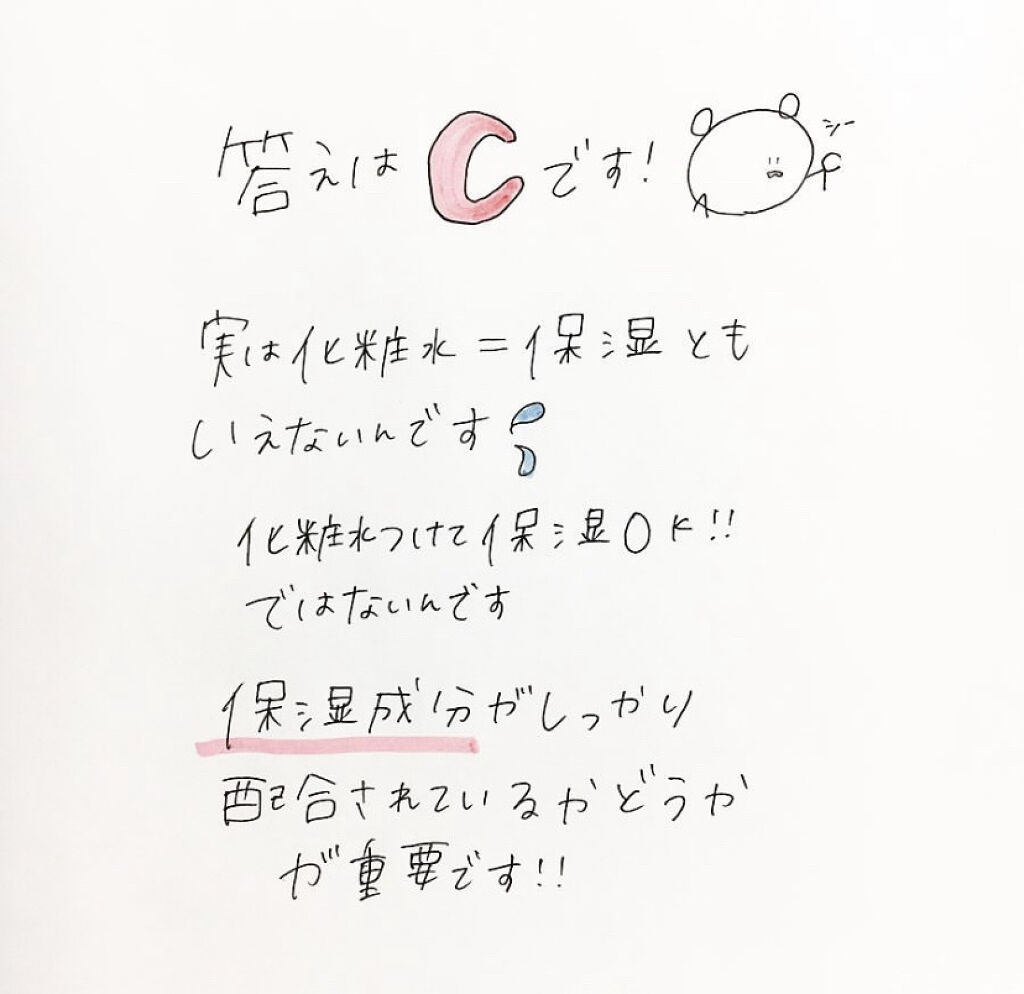 答えはCです!
シー
実は化粧水=保湿とも
いえないんです
化粧水つけて保湿OK!!
ではないんです
保湿成分がしっかり
配合されているかどうか
が重要です!!